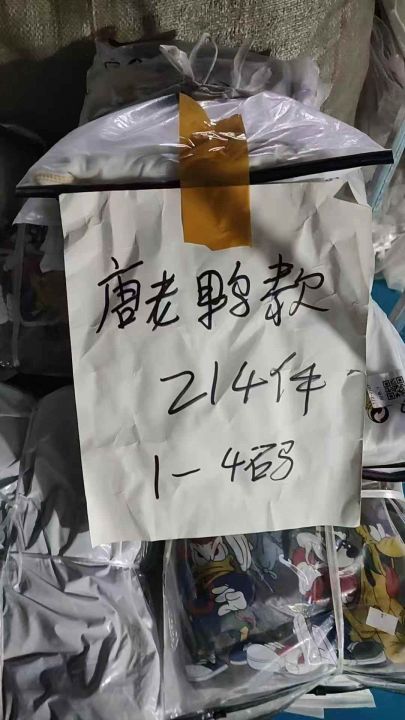 唐老鸭款
214件
1-4码